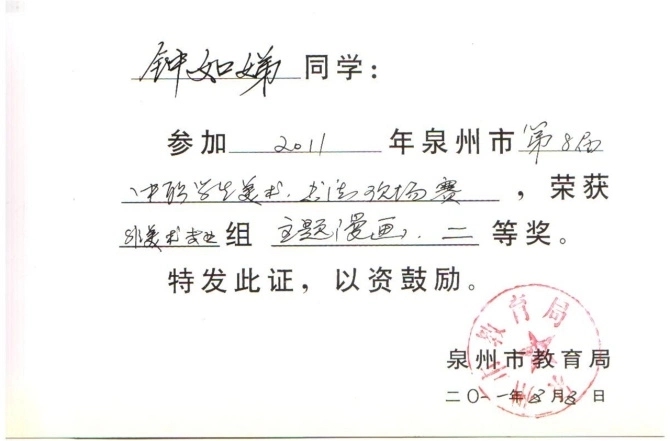 钟如娣同学：
参加2011年泉州市第8届
中职学生美术、书法现场赛，荣获
非美术专业组主题漫画、二等奖。
特发此证，以资鼓励。
泉州市教育局
二〇一一年8月8日
泉州市教育局